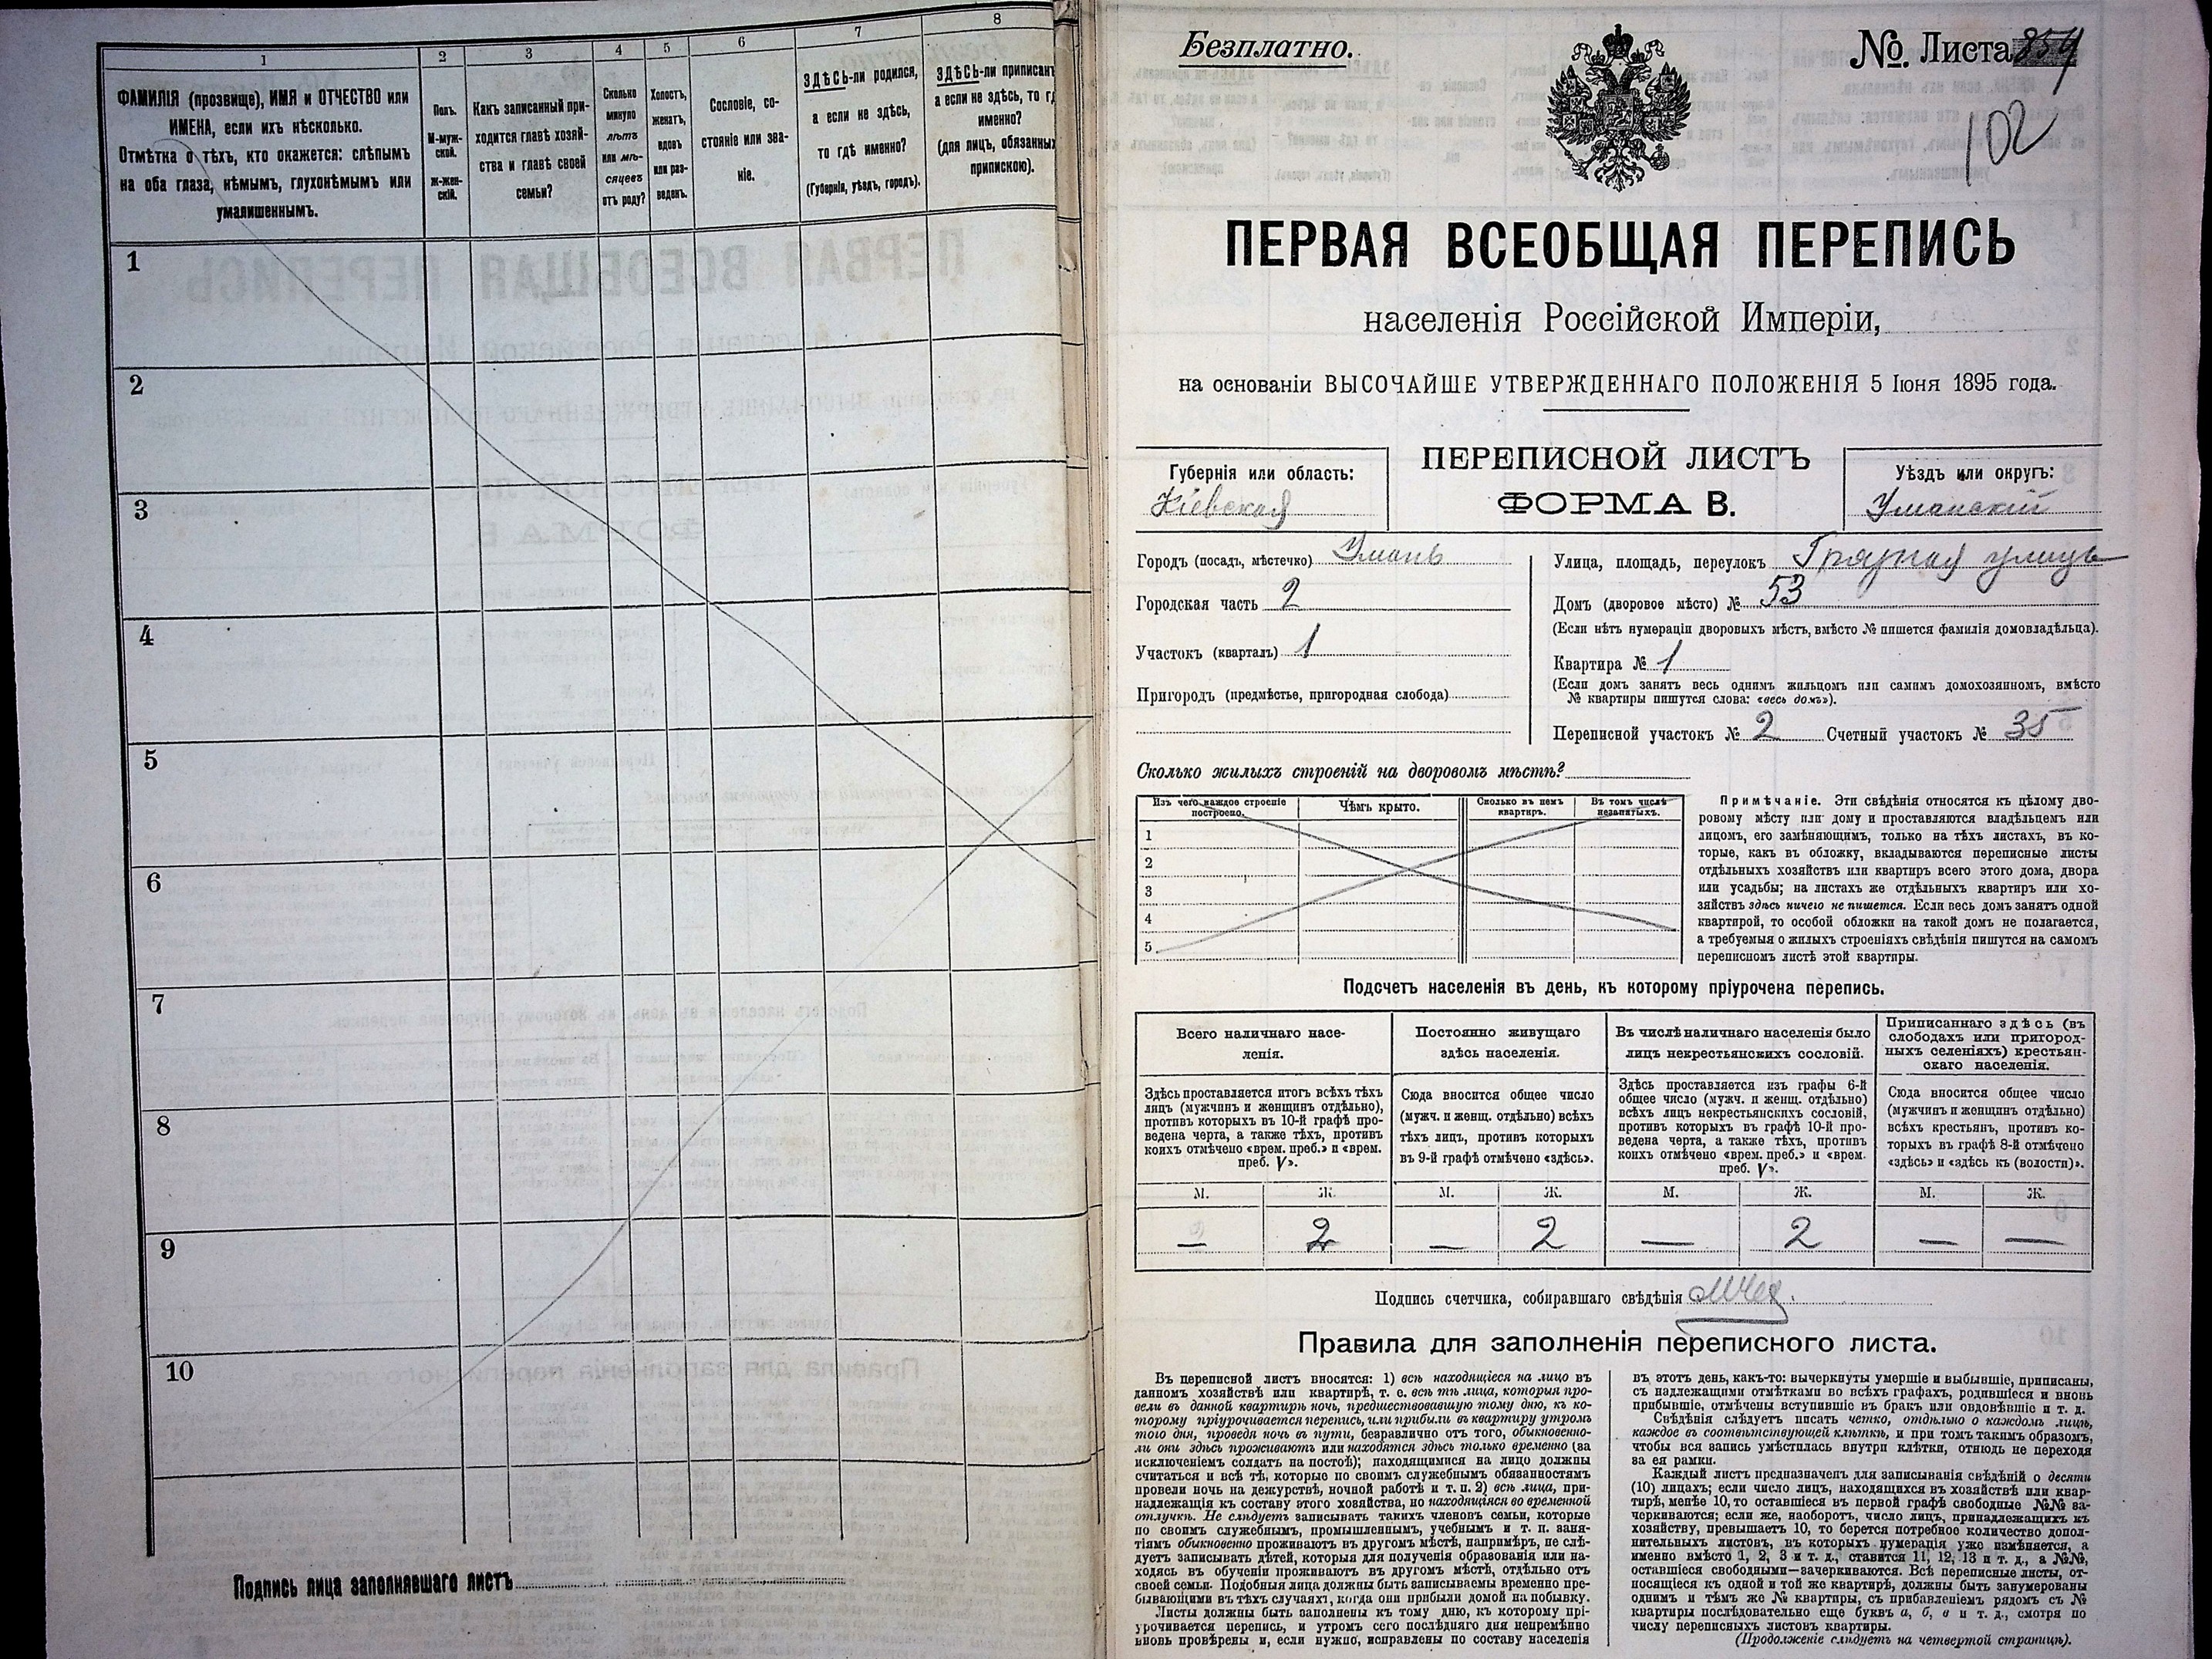 1
2
3
4
5
6
7
8
ФАМИЛІЯ (прозвище), ИМЯ и ОТЧЕСТВО или
ИМЕНА, если ихъ нѣсколько.
Отмѣтка о тѣхъ, кто окажется: слѣпымъ
на оба глаза, нѣмымъ, глухонѣмымъ или
умалишеннымъ.
Полъ.
М-муж-
ской.
Ж-жен-
скій.
Какъ записанный при-
ходится главѣ хозяй-
ства и главѣ своей
семьи?
Сколько
минуло
лѣтъ
или мѣ-
сяцевъ
отъ роду?
Холостъ,
женатъ,
вдовъ
или раз-
веденъ.
Сословіе, со-
стояніе или зва-
ніе.
ЗДѢСЬ-ли родился,
а если не здѣсь,
то гдѣ именно?
(Губернія, уѣздъ, городъ).
ЗДѢСЬ-ли приписанъ
а если не здѣсь, то гд
именно?
(для лицъ, обязанных
припискою).
1
2
3
4
5
6
7
8
9
10
Подпись лица заполнявшаго листъ
Безплатно.
№ Листа 854
102
ПЕРВАЯ ВСЕОБЩАЯ ПЕРЕПИСЬ
населенія Россійской Имперіи,
на основаніи ВЫСОЧАЙШЕ УТВЕРЖДЕННАГО ПОЛОЖЕНІЯ 5 Іюня 1895 года.
Губернія или область:
Кіевская
ПЕРЕПИСНОЙ ЛИСТЪ
ФОРМА В.
Уѣздъ или округъ:
Уманскій
Городъ (посадъ, мѣстечко) Умань
Городская часть 2
Участокъ (кварталъ) 1
Пригородъ (предмѣстье, пригородная слобода)
Улица, площадь, переулокъ Грязная улица
Домъ (дворовое мѣсто) № 53
(Если нѣтъ нумераціи дворовыхъ мѣстъ, вмѣсто № пишется фамилія домовладѣльца).
Квартира № 1
(Если домъ занятъ весь однимъ жильцомъ или самимъ домохозяиномъ, вмѣсто
№ квартиры пишутся слова: «весь домъ»).
Переписной участокъ № 2 Счетный участокъ № 35
Сколько жилыхъ строеній на дворовомъ мѣстѣ?
Изъ чего каждое строеніе
построено.
Чѣмъ крыто.
Сколько въ немъ
квартиръ.
Въ томъ числѣ
незанятыхъ.
1
2
3
4
5
Примѣчаніе. Эти свѣдѣнія относятся къ цѣлому дво-
ровому мѣсту или дому и проставляются владѣльцемъ или
лицомъ, его замѣняющимъ, только на тѣхъ листахъ, въ ко-
торые, какъ въ обложку, вкладываются переписные листы
отдѣльныхъ хозяйствъ или квартиръ всего этого дома, двора
или усадьбы; на листахъ же отдѣльныхъ квартиръ или хо-
зяйствъ здѣсь ничего не пишется. Если весь домъ занятъ одной
квартирой, то особой обложки на такой домъ не полагается,
а требуемыя о жилыхъ строеніяхъ свѣдѣнія пишутся на самомъ
переписномъ листѣ этой квартиры.
Подсчетъ населенія въ день, къ которому пріурочена перепись.
Всего наличнаго насе-
ленія.
Здѣсь проставляется итогъ всѣхъ тѣхъ
лицъ (мужчинъ и женщинъ отдѣльно),
противъ которыхъ въ 10-й графѣ про-
ведена черта, а также тѣхъ, противъ
коихъ отмѣчено «врем. преб.» и «врем.
преб. V».
Постоянно живущаго
здѣсь населенія.
Сюда вносится общее число
(мужч. и женщ. отдѣльно) всѣхъ
тѣхъ лицъ, противъ которыхъ
въ 9-й графѣ отмѣчено «здѣсь».
Въ числѣ наличнаго населенія было
лицъ некрестьянскихъ сословій.
Здѣсь проставляется изъ графы 6-й
общее число (мужч. и женщ. отдѣльно)
всѣхъ лицъ некрестьянскихъ сословій,
противъ которыхъ въ графѣ 10-й про-
ведена черта, а также тѣхъ, противъ
коихъ отмѣчено «врем. преб.» и «врем.
преб. V».
Приписаннаго здѣсь (въ
слободахъ или пригород-
ныхъ селеніяхъ) крестьян-
скаго населенія.
Сюда вносится общее число
(мужчинъ и женщинъ отдѣльно)
всѣхъ крестьянъ, противъ ко-
торыхъ въ графѣ 8-й отмѣчено
«здѣсь» и «здѣсь къ (волости)».
М. Ж. М. Ж. М. Ж. М. Ж.
— 2 — 2 — 2 — —
Подпись счетчика, собиравшаго свѣдѣнія
Правила для заполненія переписного листа.
Въ переписной листъ вносятся: 1) всѣ находящіеся на лицо въ
данномъ хозяйствѣ или квартирѣ, т. е. всѣ тѣ лица, которыя про-
вели въ данной квартирѣ ночь, предшествовавшую тому дню, къ ко-
торому пріурочивается перепись, или прибыли въ квартиру утромъ
того дня, проведя ночь въ пути, безразлично отъ того, обыкновенно-
ли они здѣсь проживаютъ или находятся здѣсь только временно (за
исключеніемъ солдатъ на постоѣ); находящимися на лицо должны
считаться и всѣ тѣ, которые по своимъ служебнымъ обязанностямъ
провели ночь на дежурствѣ, ночной работѣ и т. п. 2) всѣ лица, при-
надлежащія къ составу этого хозяйства, но находящіяся во временной
отлучкѣ. Не слѣдуетъ записывать такихъ членовъ семьи, которые
по своимъ служебнымъ, промышленнымъ, учебнымъ и т. п. заня-
тіямъ обыкновенно проживаютъ въ другомъ мѣстѣ, напримѣръ, не слѣ-
дуетъ записывать дѣтей, которыя для полученія образованія или на-
ходясь въ обученіи проживаютъ въ другомъ мѣстѣ, отдѣльно отъ
своей семьи. Подобныя лица должны быть записываемы временно пре-
бывающими въ тѣхъ случаяхъ, когда они прибыли домой на побывку.
Листы должны быть заполнены къ тому дню, къ которому прі-
урочивается перепись, и утромъ сего послѣдняго дня непремѣнно
вновь провѣрены и, если нужно, исправлены по составу населенія
въ этотъ день, какъ-то: вычеркнуты умершіе и выбывшіе, приписаны,
съ надлежащими отмѣтками во всѣхъ графахъ, родившіеся и вновь
прибывшіе, отмѣчены вступившіе въ бракъ или овдовѣвшіе и т. д.
Свѣдѣнія слѣдуетъ писать четко, отдѣльно о каждомъ лицѣ,
каждое въ соотвѣтствующей клѣткѣ, и при томъ такимъ образомъ,
чтобы вся запись умѣстилась внутри клѣтки, отнюдь не переходя
за ея рамки.
Каждый листъ предназначенъ для записыванія свѣдѣній о десяти
(10) лицахъ; если число лицъ, находящихся въ хозяйствѣ или квар-
тирѣ, менѣе 10, то оставшіеся въ первой графѣ свободные №№ за-
черкиваются; если же, наоборотъ, число лицъ, принадлежащихъ къ
хозяйству, превышаетъ 10, то берется потребное количество допол-
нительныхъ листовъ, въ которыхъ нумерація уже измѣняется, а
именно вмѣсто 1, 2, 3 и т. д., ставится 11, 12, 13 и т. д., а №№,
оставшіеся свободными—зачеркиваются. Всѣ переписные листы, от-
носящіеся къ одной и той же квартирѣ, должны быть занумерованы
однимъ и тѣмъ же № квартиры, съ прибавленіемъ рядомъ съ №
квартиры послѣдовательно еще буквъ а, б, в и т. д., смотря по
числу переписныхъ листовъ квартиры.
(Продолженіе слѣдуетъ на четвертой страницѣ).